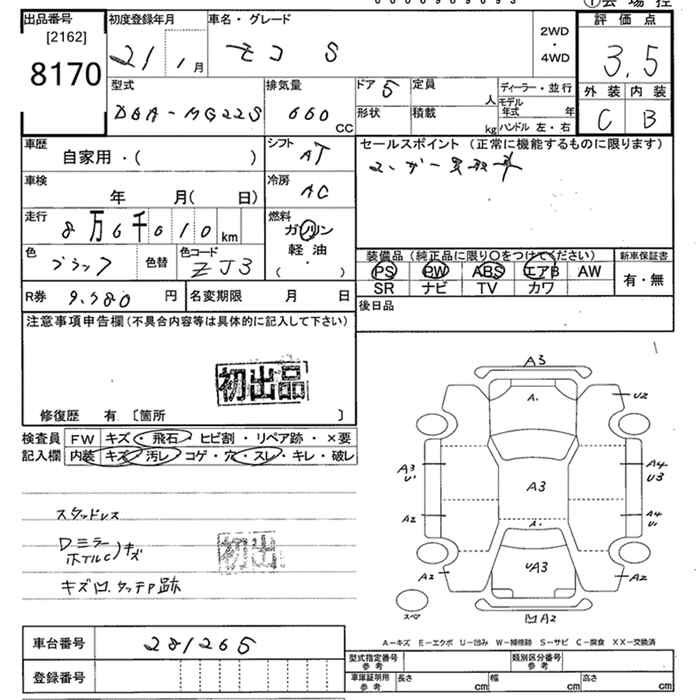 出品番号
[2162]
8170
初度登録年月
21 1月
車名・グレード
モコ S
2WD
・
4WD
評価点
3.5
外装 内装
C B
型式
DBA-MG22S
排気量
660 CC
ドア 5
定員 人
形状
積載 kg
ディーラー・並行
モデル年式 年
ハンドル 左・右
車歴
自家用・( )
シフト
AT
セールスポイント (正常に機能するものに限ります)
車検
年 月( 日)
冷房
AC
走行
8万6千010km
燃料
ガソリン
軽油
( ・ )
色
ブラック
色替
色コード
ZJ3
装備品 (純正品に限り〇をつけてください)
PS PW ABS エアB AW
SR ナビ TV カワ
新車保証書
有・無
R券 9,980 円
名変期限 月 日
後日品
注意事項申告欄 (不具合内容等は具体的に記入して下さい)
初出品
修復歴 有 [箇所 ]
検査員
記入欄
FW キズ・飛石・ヒビ割・リペア跡・×要
内装 キズ・汚レ・コゲ・穴・スレ・キレ・破レ
スタッドレス
ホイルC)キズ
初出
A3
A.
U2
A3
U'
A4
U3
A3
A2
A.
A4
U1
A2
UA3
A2
スペア
A2
A-キズ E-エクボ U-凹み W-補修跡 S-サビ C-腐食 XX-交換済
車台番号
281265
登録番号
型式指定番号
参考
類別区分番号
参考
車庫証明用
参考
長さ cm
幅 cm
高さ cm